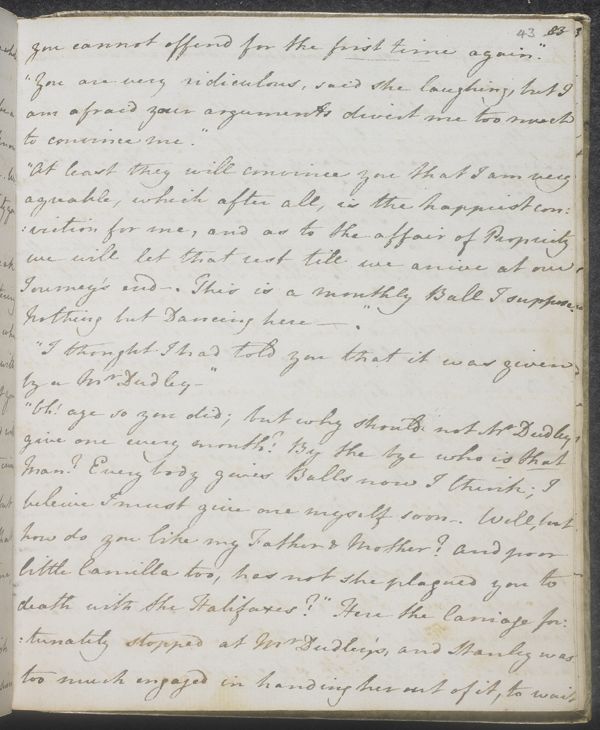 43 83
you cannot offend for the first time again."
"You are very ridiculous, said she laughing, but I
am afraid your arguments divert me too much
to convince me."
"At least they will convince you that I am very
agreable, which after all, is the happiest con:
:viction for me, and as to the affair of Propriety
we will let that rest till we arrive at our
Journey's end—. This is a monthly Ball I suppose.
Nothing but Dancing here—."
"I thought I had told you that it was given
by a Mr Dudley—"
"Oh! aye so you did; but why should not Mr Dudley
give one every month? By the bye who is that
Man? Every body gives Balls now I think; I
beleive I must give one myself soon—. Well, but
how do you like my Father & Mother? and poor
little Camilla too, has not she plagued you to
death with the Halifaxes?" Here the Carriage for:
:tunately stopped at Mr Dudley's, and Stanley was
too much engaged in handing her out of it, to wait